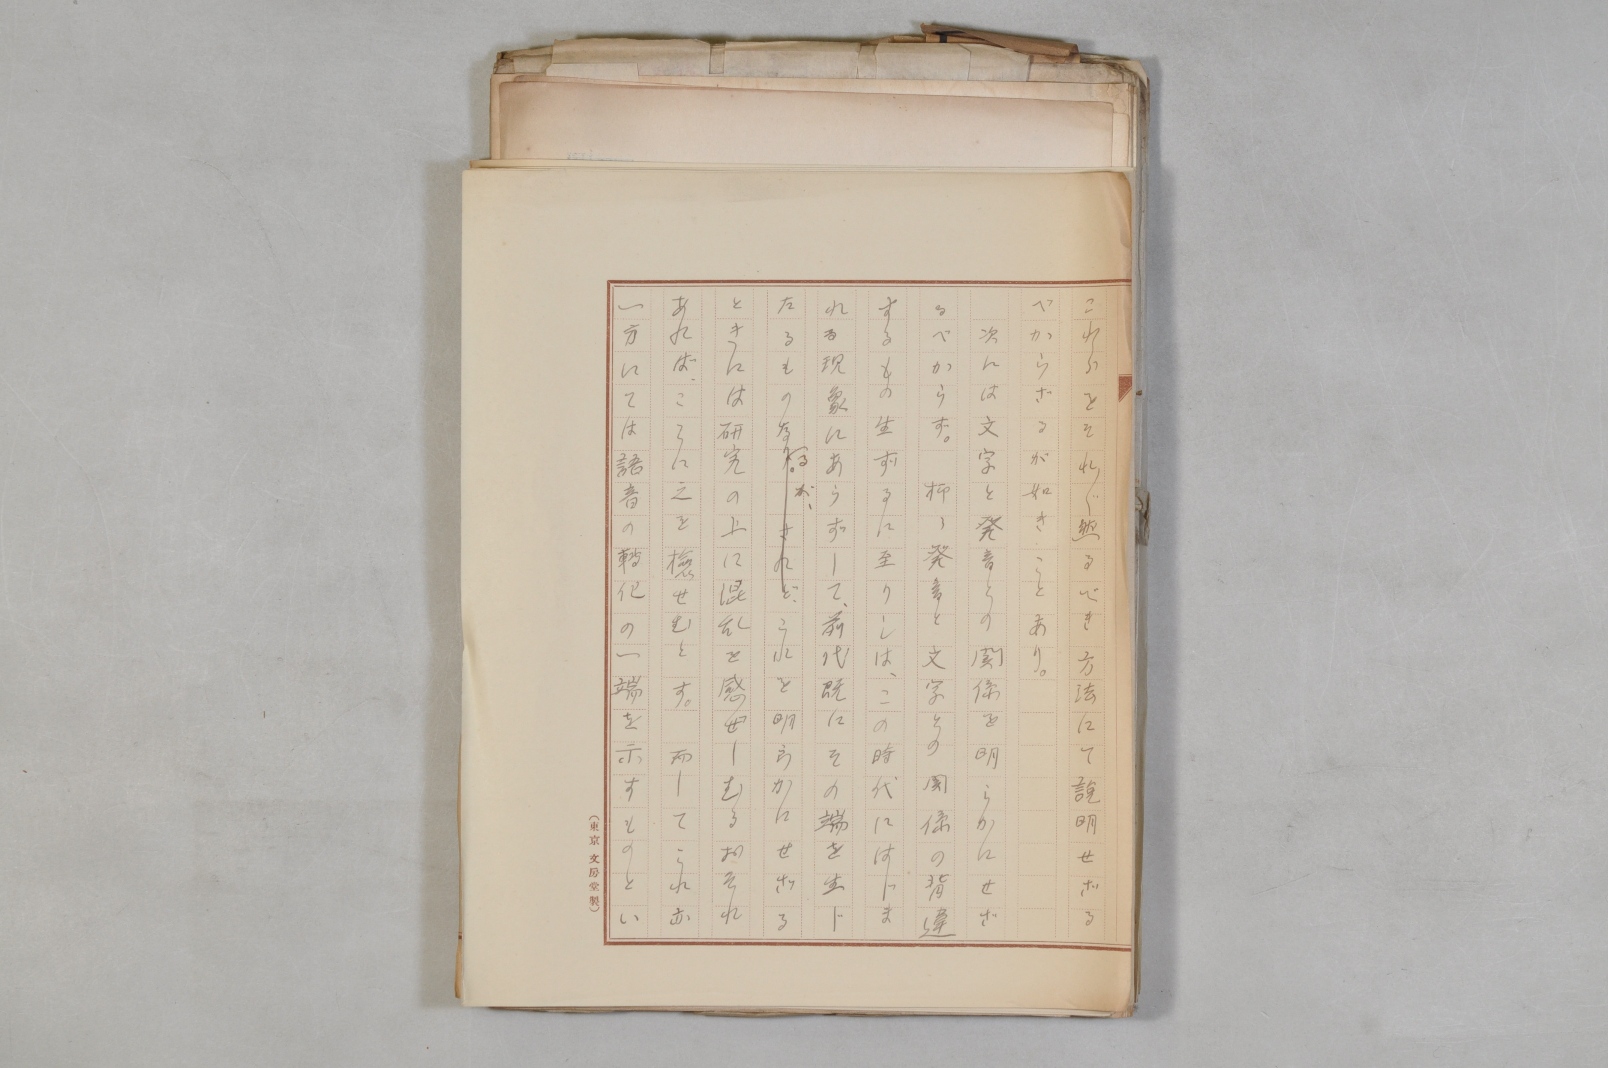 これらをそれ〲照るべき方法にて説明せざる
べからざるが如きことあり。
次には文字と発音との関係を明らかにせざ
るべからず。抑〻発音と文字との関係の背違
するもの生ずるに至りしは、この時代にはじま
れる現象にあらずして、前代既にその端を生じ
たるものなるが、これを明らかにせざる
ときには研究の上に混乱を感ぜしむるおそれ
あれば、こゝに之を検せむとす。而してこれ亦
一方にては語音の轉化の一端を示すものとい
(東京 文房堂製)